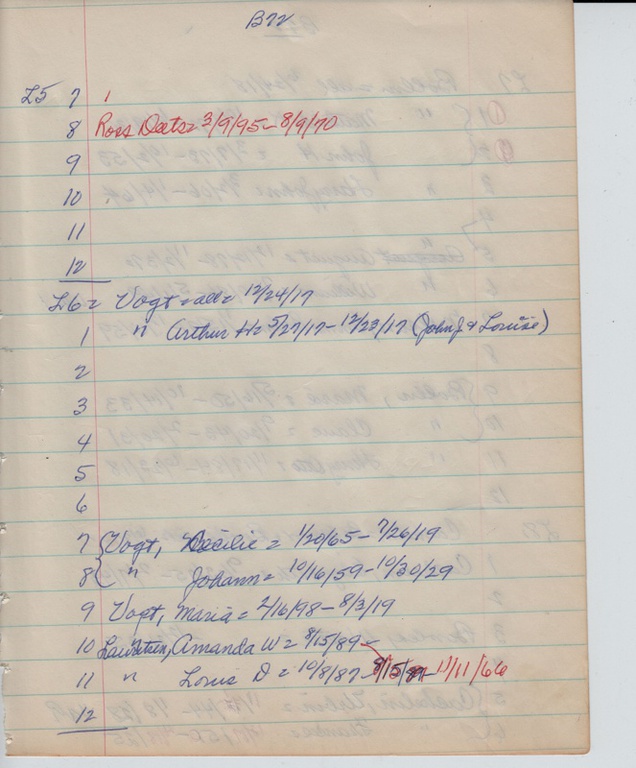 B22
L5 7
8 Ross Dats = 3/9/95 - 8/9/70
9
10
11
12
L6 = Vogt = all = 12/24/17
1 " Arthur H = 5/27/17 - 12/23/17 (John J & Louise)
2
3
4
5
6
7 Vogt, Cecilie = 1/20/65 - 7/26/19
8 " Johann = 10/16/59 - 10/30/29
9 Vogt, Maria = 2/16/98 - 8/3/19
10 Amanda W = 8/15/89 -
11 " Louis D = 10/8/87 - 11/11/66
12